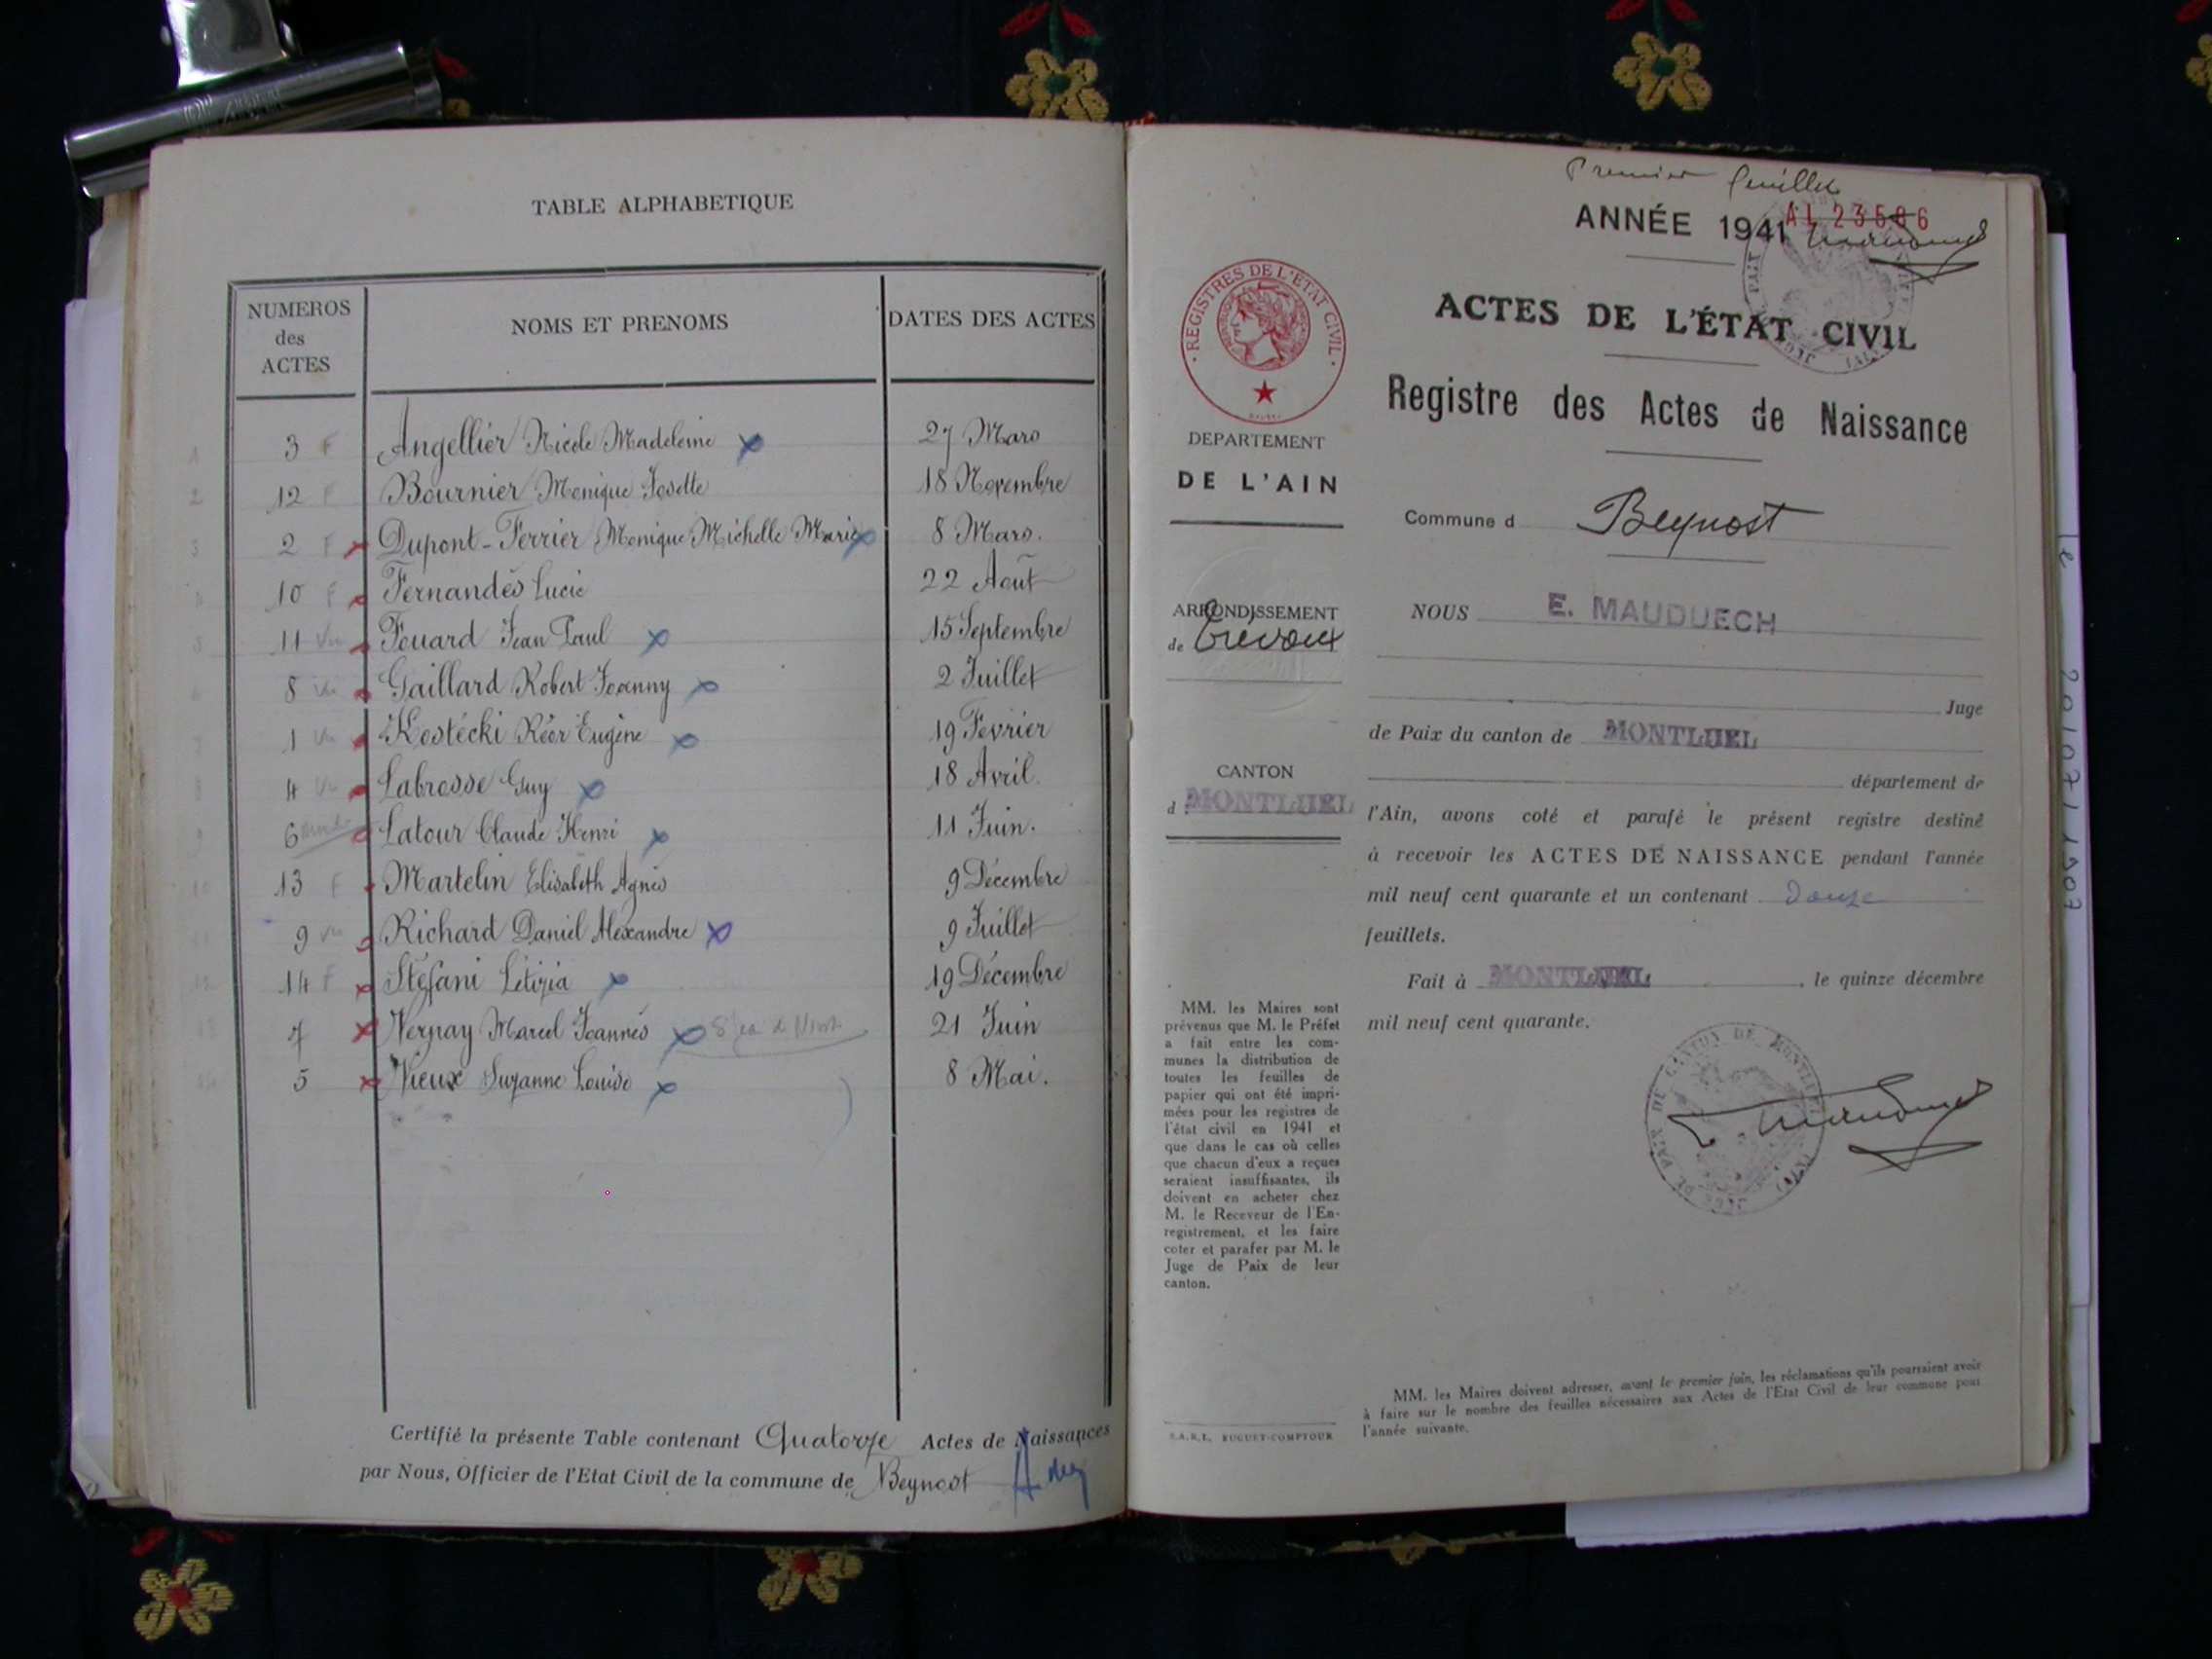 TABLE ALPHABETIQUE
NUMEROS
des
ACTES
NOMS ET PRENOMS
DATES DES ACTES
3 F Angellier Nicole Madeleine 27 Mars
12 F Bournier Monique Josette 18 Novembre
2 F Dupont-Ferrier Monique Michelle Marie 8 Mars.
10 F Fernandès Lucie 22 Août
11 Fouard Jean Paul 15 Septembre
8 Gaillard Robert Joanny 2 Juillet
1 Kostécki Eugène 19 Février
4 Labrosse Guy 18 Avril.
6 Latour Claude Henri 11 Juin.
13 F Martelin Elisabeth Agnès 9 Décembre
9 Richard Daniel Alexandre 9 Juillet
14 F Stéfani Létizia 19 Décembre
7 Vernay Marcel Joannès 21 Juin
5 Vieux Suzanne Louise 8 Mai.
Certifié la présente Table contenant Quatorze Actes de Naissances
par Nous, Officier de l'Etat Civil de la commune de Beynost
Premier feuillet
ANNÉE 1941 AL 23586
ACTES DE L'ÉTAT CIVIL
Registre des Actes de Naissance
REGISTRES DE L'ÉTAT CIVIL
DEPARTEMENT
DE L'AIN
Commune d Beynost
ARRONDISSEMENT
de Trevoux
NOUS E. MAUDUECH
Juge
de Paix du canton de MONTLUEL
CANTON
d MONTLUEL
département de
l'Ain, avons coté et parafé le présent registre destiné
à recevoir les ACTES DE NAISSANCE pendant l'année
mil neuf cent quarante et un contenant douze
feuillets.
Fait à MONTLUEL, le quinze décembre
mil neuf cent quarante.
MM. les Maires sont
prévenus que M. le Préfet
a fait entre les com-
munes la distribution de
toutes les feuilles de
papier qui ont été impri-
mées pour les registres de
l'état civil en 1941 et
que dans le cas où celles
que chacun d'eux a reçues
seraient insuffisantes, ils
doivent en acheter chez
M. le Receveur de l'En-
registrement, et les faire
coter et parafer par M. le
Juge de Paix de leur
canton.
S.A.R.L. RUGUET-COMPTOUR
MM. les Maires doivent adresser, avant le premier juin, les réclamations qu'ils pourraient avoir
à faire sur le nombre des feuilles nécessaires aux Actes de l'Etat Civil de leur commune pour
l'année suivante.